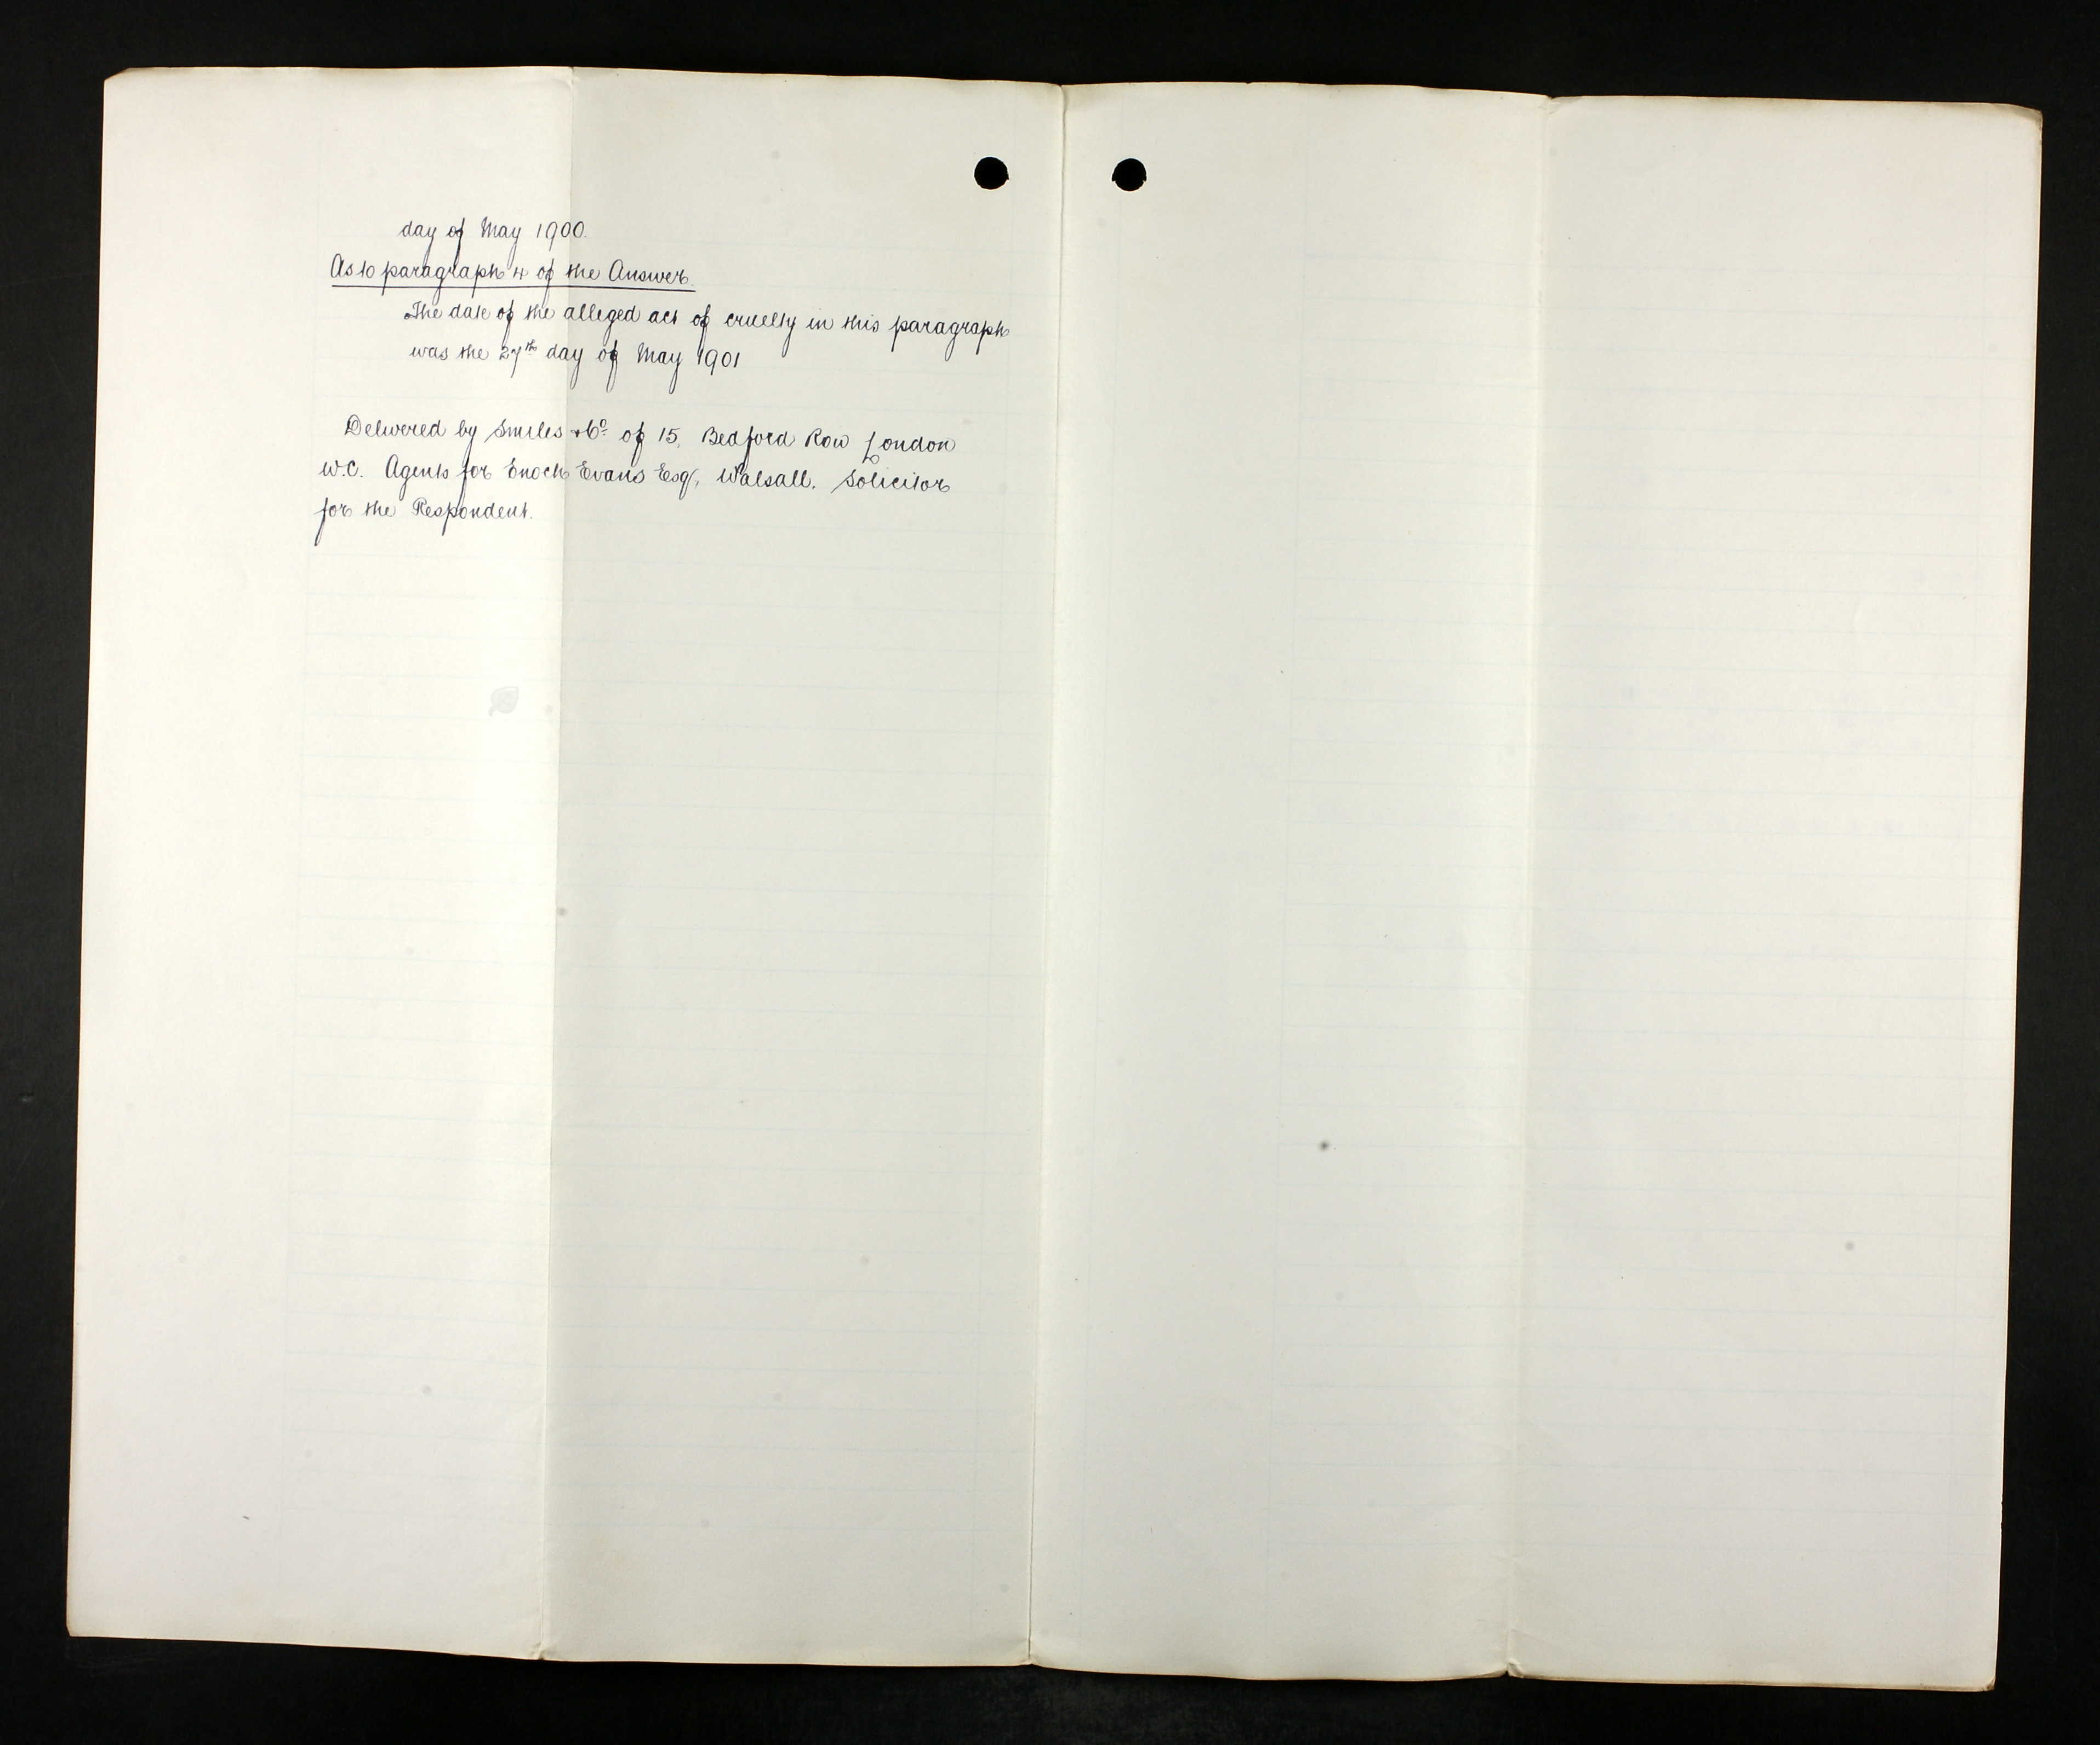 day of May 1900.
As to paragraph 4 of the Answer.
The date of the alleged act of cruelty in this paragraph
was the 27th day of May 1901
Delivered by Smiles & Co of 15, Bedford Row London
W.C. Agents for Enoch Evans Esq, Walsall. Solicitor
for the Respondent.